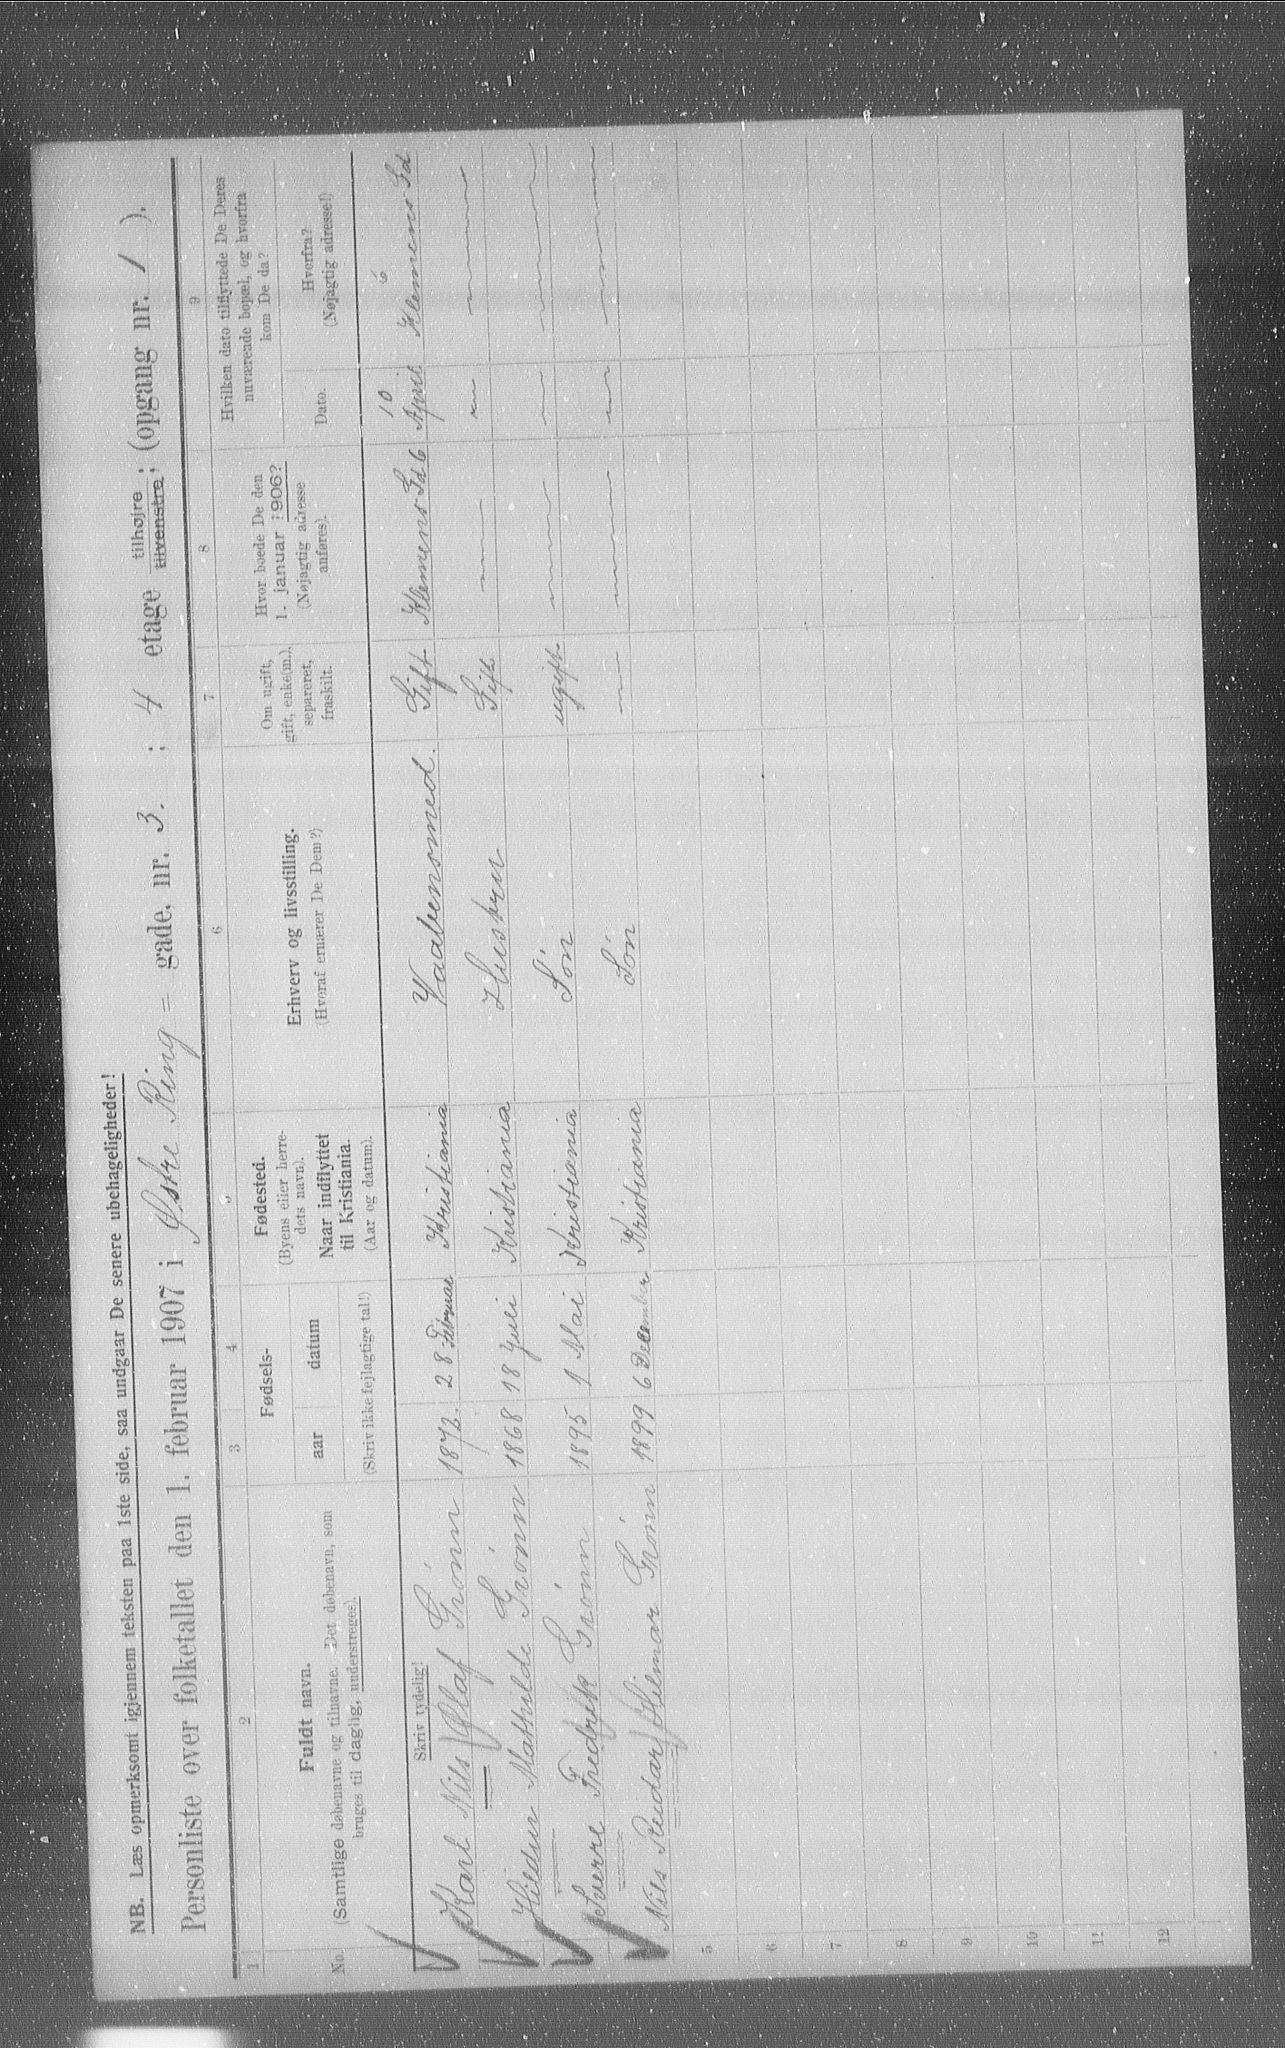 NB. Læs opmerksomt igjennem teksten paa 1ste side, saa undgaar De senere ubehageligheder!
Personliste over folketallet den 1. februar 1907 i Østre Ring = gade, nr. 3. ; 4 etage tilhøjre tilvenstre; (opgang nr. 1 ).
1 2 3 4 5 6 7 8 9
No.
Fuldt navn.
(Samtlige døbenavne og tilnavne. Det døbenavn, som
bruges til daglig, understreges).
Fødsels-
aar datum
(Skriv ikke fejlagtige tal!)
Fødested.
(Byens eller herre-
dets navn).
Naar indflyttet
til Kristiania.
(Aar og datum).
Erhverv og livsstilling.
(Hvoraf ernærer De Dem?)
Om ugift,
gift, enke(m.),
separeret,
fraskilt.
Hvor boede De den
1. januar 1906?
(Nøjagtig adresse
anføres).
Hvilken dato tilflyttede De Deres
nuværende bopæl, og hvorfra
kom De da?
Dato.
Hvorfra?
(Nøjagtig adresse!)
Skriv tydelig!
Karl Nils Olaf Grönn 1872. 28 Februar Kristiania Vaabensmed. Gift Klemens Gd 6 10 April Klemens Gd 6
Hildur Mathilde Grönn 1868 18 Juli Kristiania Hustru Gift
Sverre Fredrik Grönn 1895 1 Mai Kristiania Sön ugift
Nils Reidar Hilmar Grönn 1899 6 December Kristiania Sön
5
6
7
8
9
10
11
12